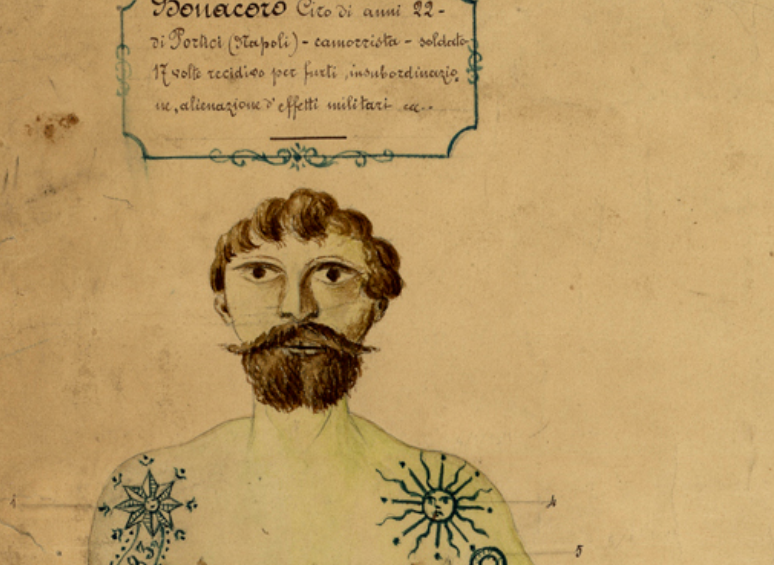 Bonacoro Ciro di anni 22-
di Portici (Napoli) - camorrista - soldato
17 volte recidivo per furti, insubordinazio
ne, alienazione d'effetti militari ec..
1
4
5
83